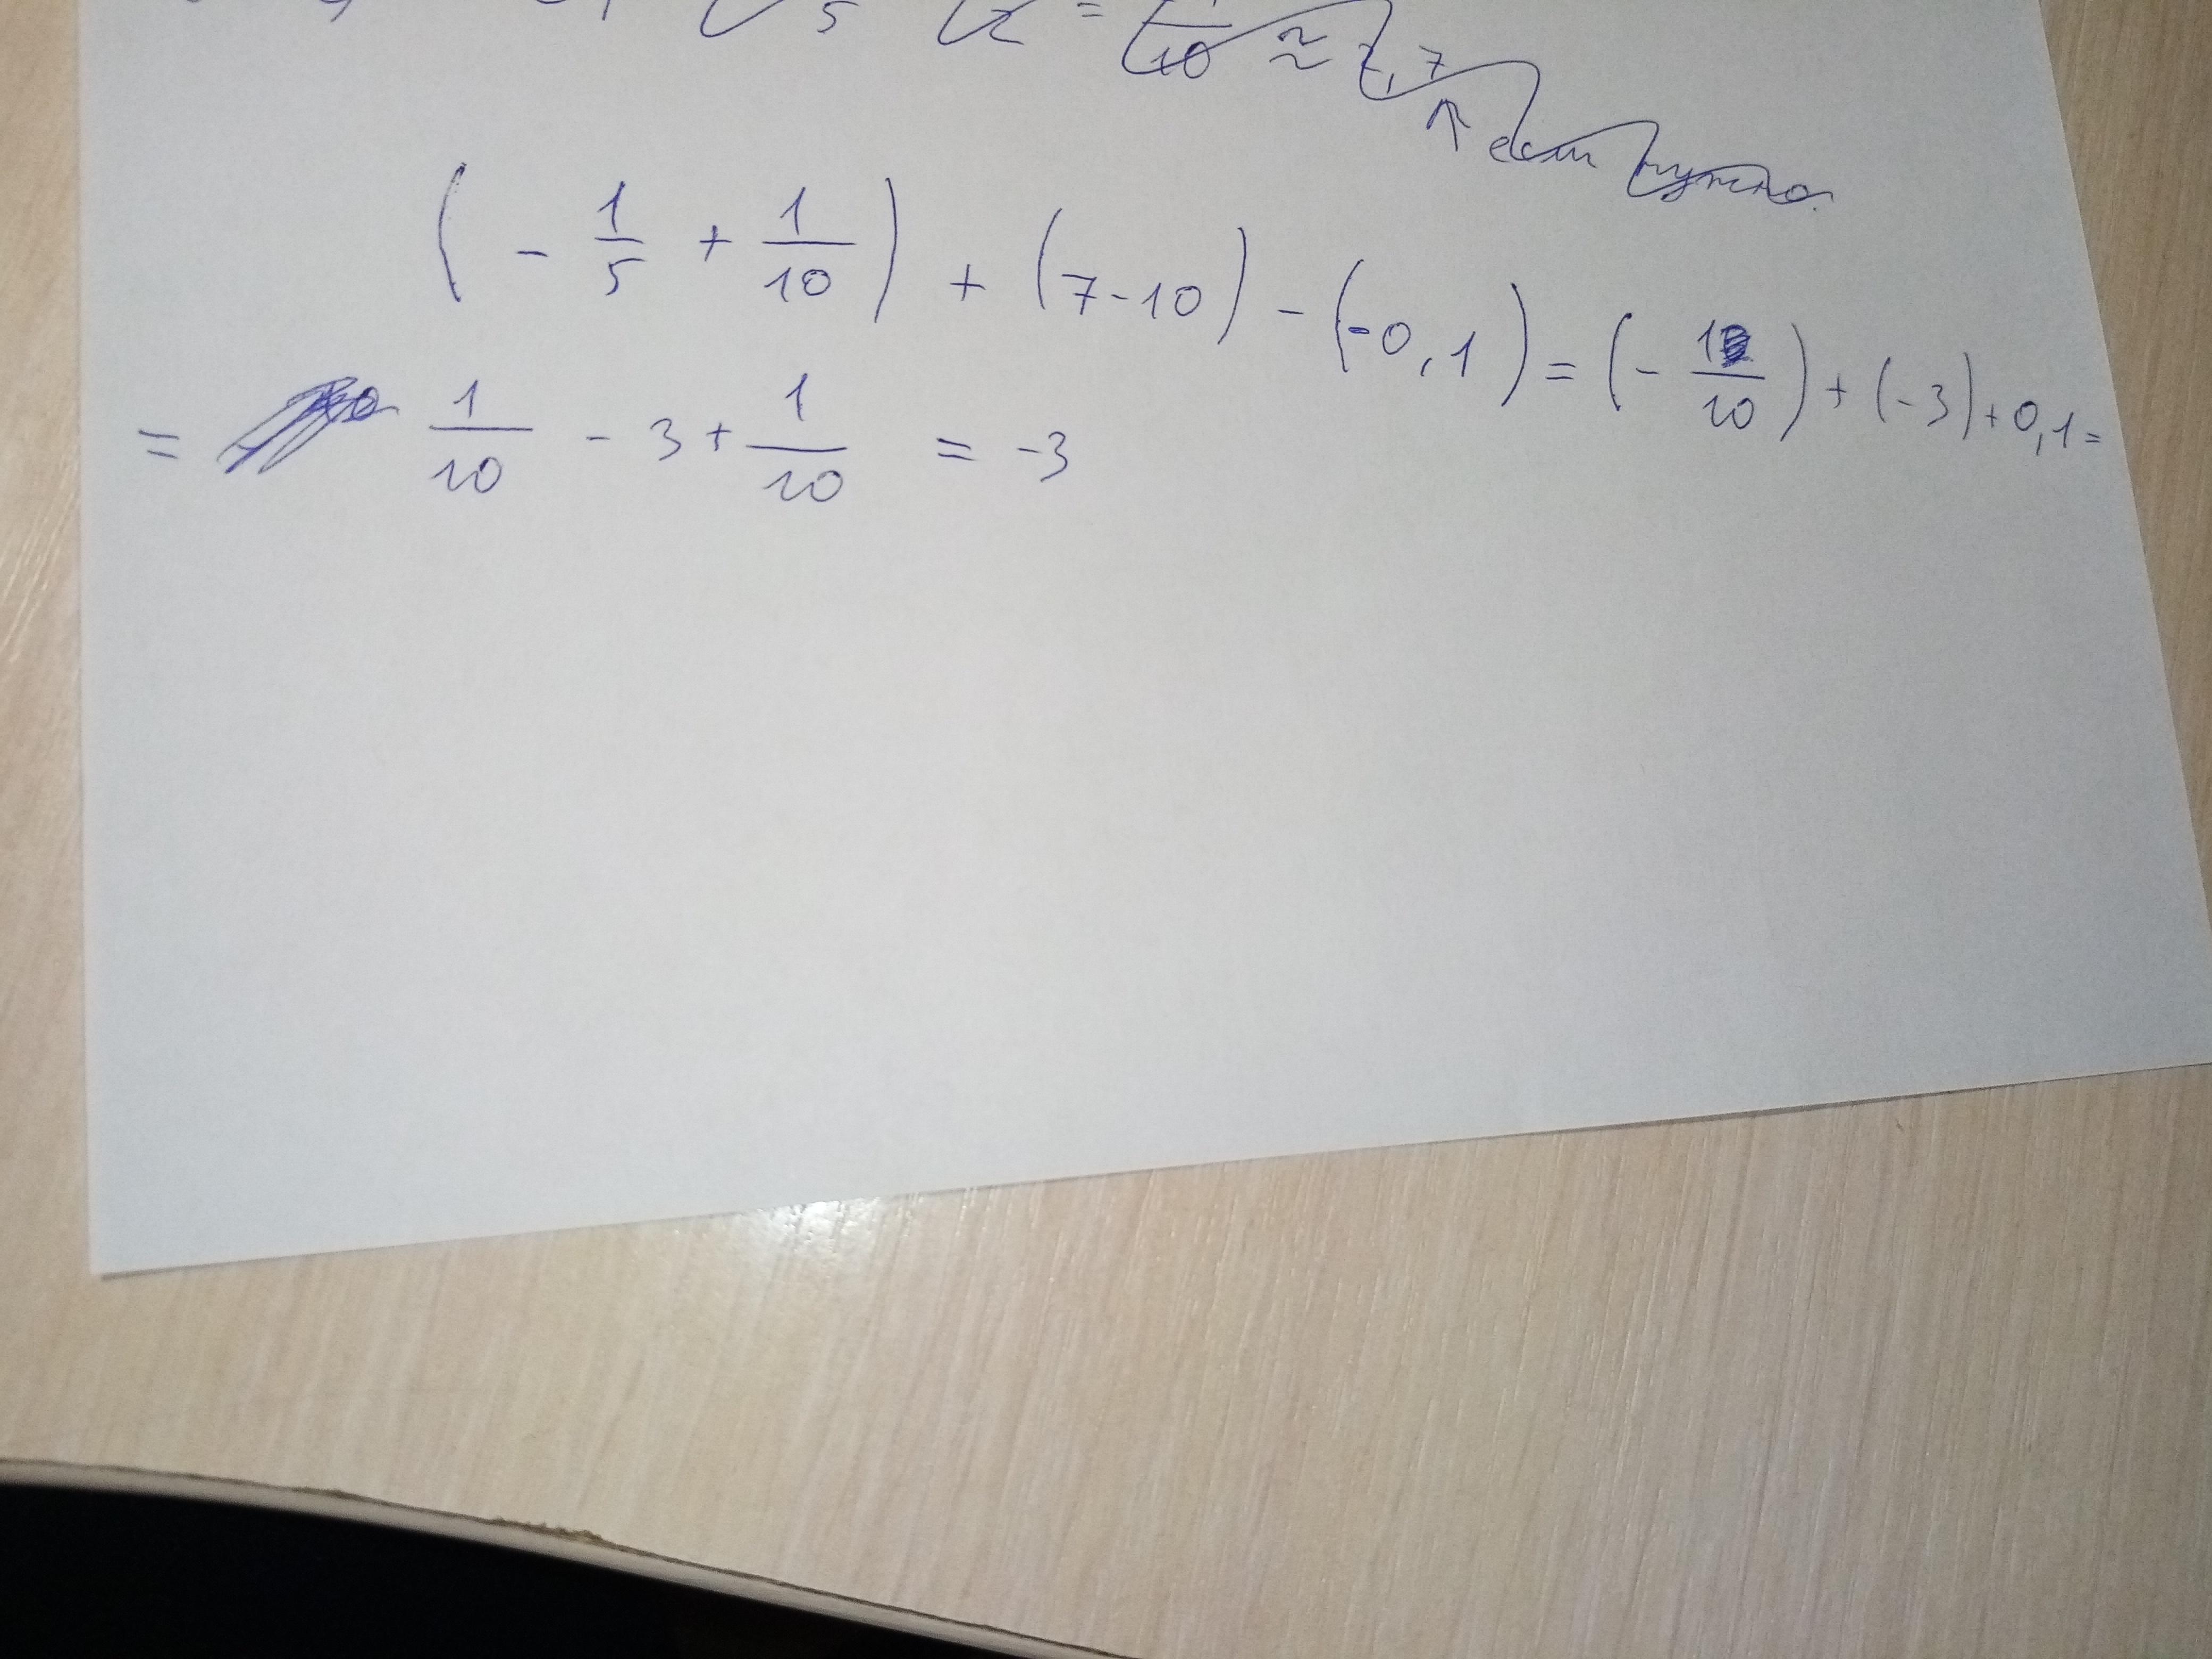 5 2 = 10 ≈ 7,7
↑ если нужно.
( - 1/5 + 1/10 ) + (7-10) - (-0,1) = (- 1/10) + (-3) + 0,1 =
= 1/10 - 3 + 1/10 = -3